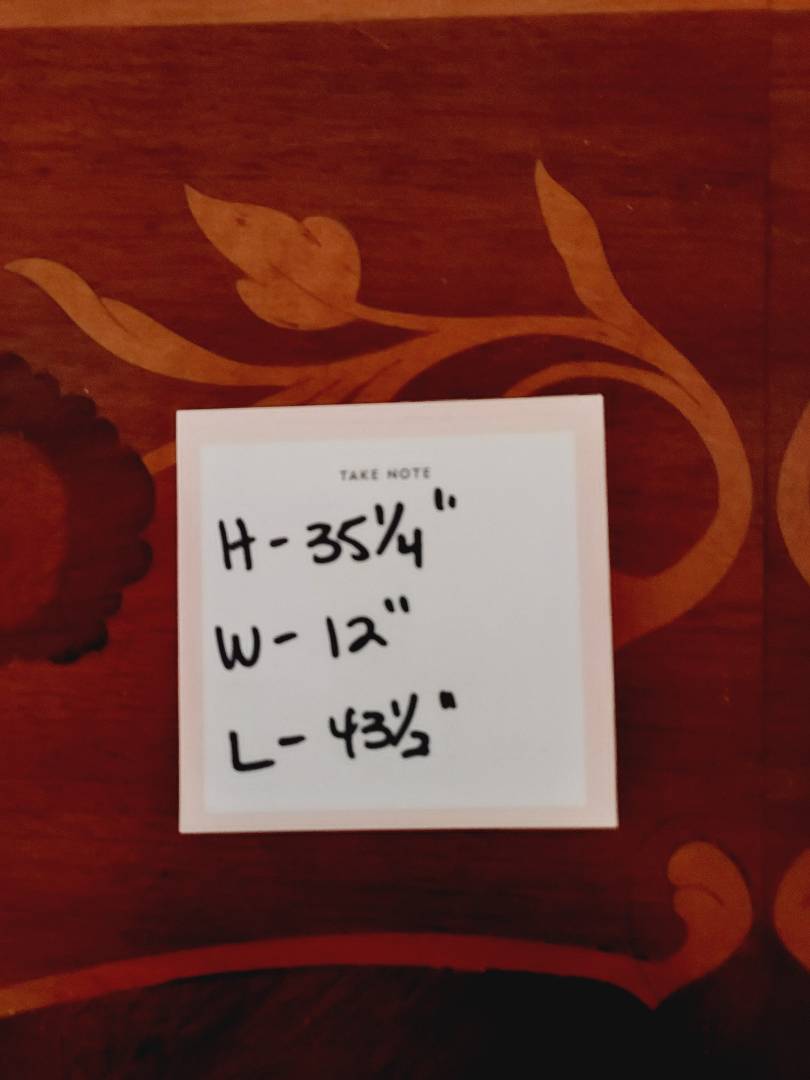 TAKE NOTE
H - 35 1/4"
W - 12"
L - 43 1/2"